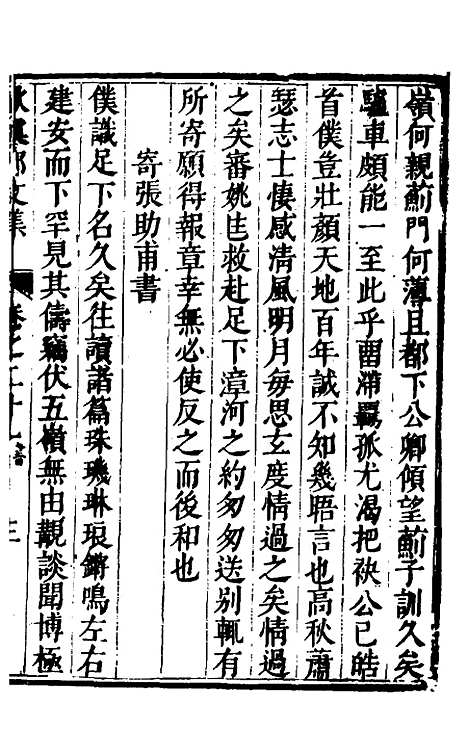 嶺何親薊門何薄且都下公卿傾望薊子訓久矣
驢車頗能一至此乎畱滯羈孤尤渴把袂公已皓
首僕豈壯顔天地百年誠不知幾晤言也高秋蕭
瑟志士悽感清風明月每思玄度情過之矣情過
之矣審姚生救赴足下漳河之約匆匆送别輒有
所寄願得報章幸無必使反之而後和也
寄張助甫書
僕識足下名久矣往讀諸篇珠璣琳琅鏘鳴左右
建安而下罕見其儔竊伏五嶺無由覩談聞博極
文集
卷之二十七 書